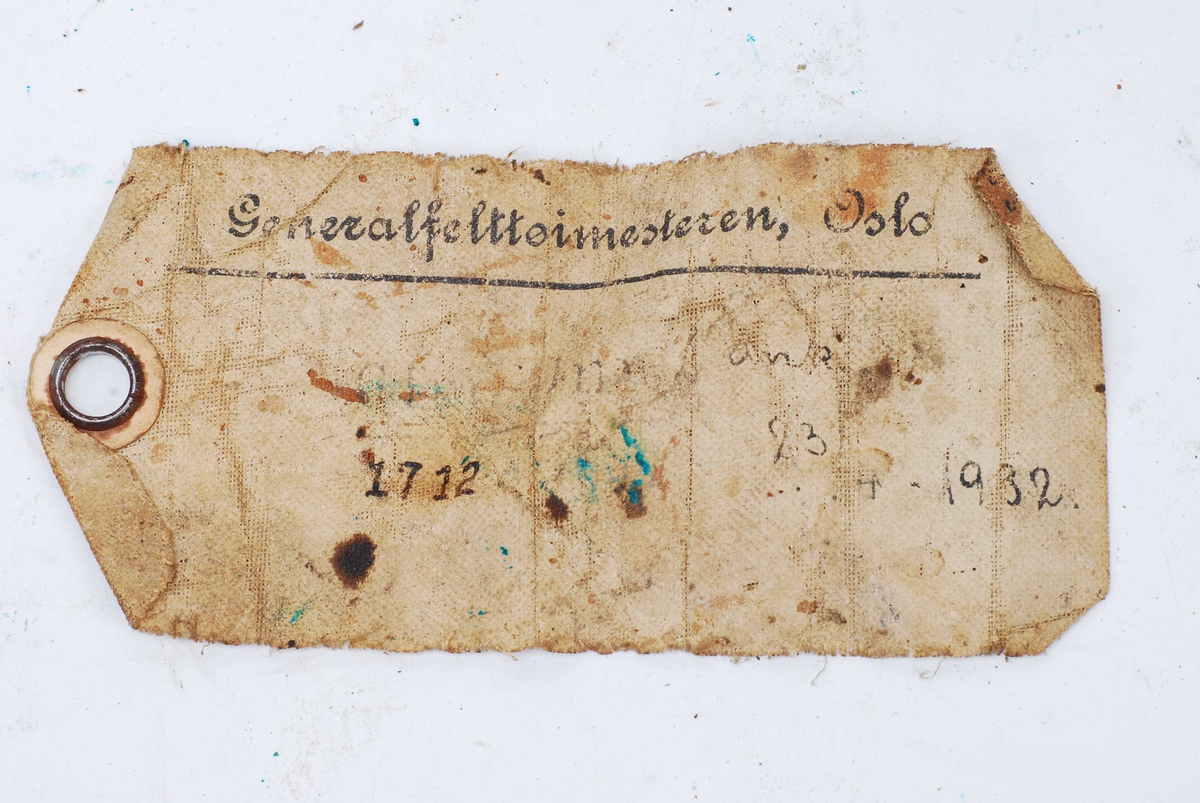 Generalfelttoimesteren, Oslo
ank
23
1712 4 - 1932.